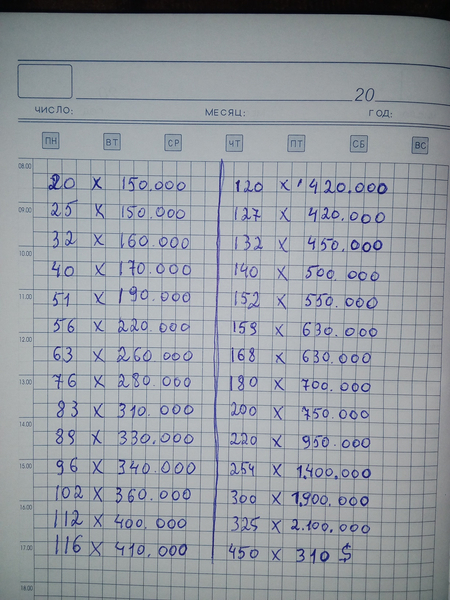 20
ЧИСЛО: МЕСЯЦ: ГОД:
ПН ВТ СР ЧТ ПТ СБ ВС
08.00
20 x 150.000
09.00
25 x 150.000
32 x 160.000
10.00
40 x 170.000
11.00
51 x 190.000
56 x 220.000
12.00
63 x 260.000
13.00
76 x 280.000
83 x 310.000
14.00
89 x 330.000
15.00
96 x 340.000
102 x 360.000
16.00
112 x 400.000
17.00
116 x 410.000
18.00
120 x 420.000
127 x 420.000
132 x 450.000
140 x 500.000
152 x 550.000
159 x 630.000
168 x 630.000
180 x 700.000
200 x 750.000
220 x 950.000
254 x 1.400.000
300 x 1.900.000
325 x 2.100.000
450 x 310 $